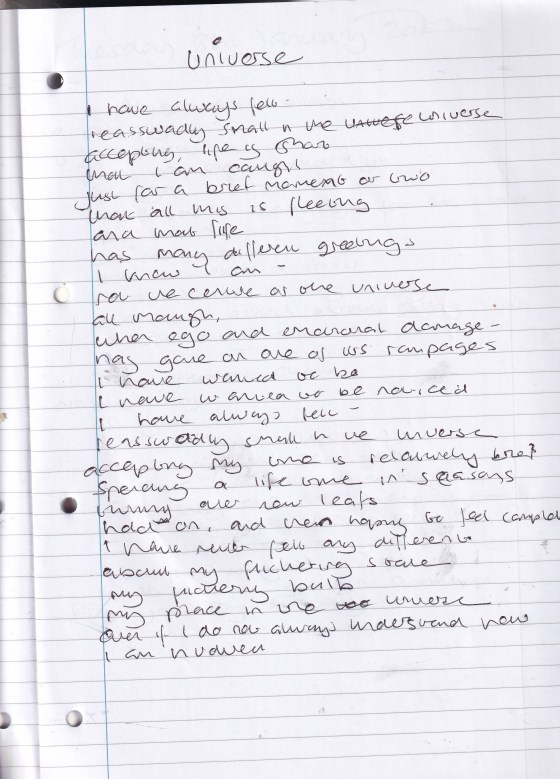 universe
I have always felt -
reasswadly small in the universe
accepting, life is short
that I am caught
just for a brief moment or two
that all this is fleeting
and that life
has many different greetings
I know I am -
not the centre of the universe
all though,
when ego and emotional damage -
has gone on one of its rampages
I have wanted to be
I have wanted to be noticed
I have always felt -
reasswadly small in the universe
accepting my time is relatively brief
spending a life time in seasons
turning over new leafs
hold on, and then hoping to feel
I have never felt any different
about my flickering state
my flickering bulb
my place in the universe
even if I do not always understand how
I am involved